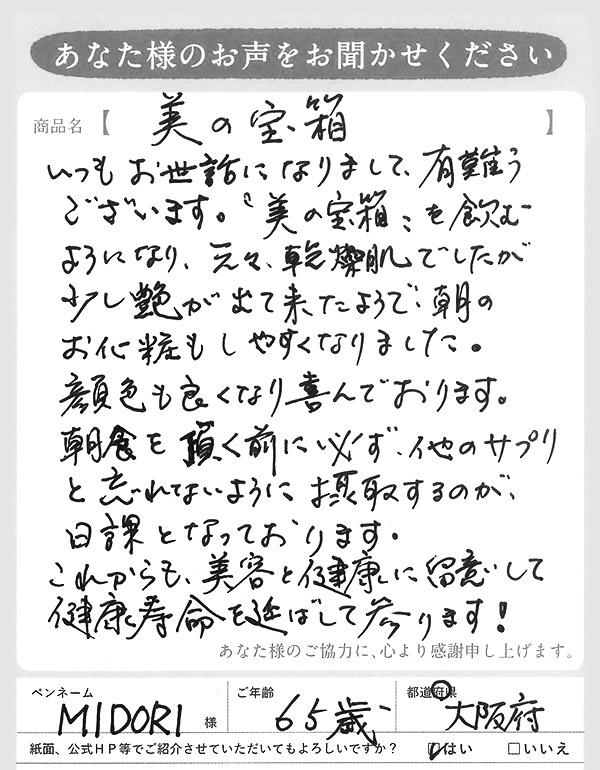 あなた様のお声をお聞かせください
商品名【 美の宝箱 】
いつもお世話になりまして、有難う
ございます。「美の宝箱」を飲む
ようになり、元々、乾燥肌でしたが
少し艶が出て来たようで、朝の
お化粧もしやすくなりました。
顔色も良くなり喜んでおります。
朝食を頂く前に必ず、他のサプリ
と忘れてないように摂取するのが、
日課となっております。
これからも、美容と健康に留意して
健康寿命を延ばして参ります!
あなた様のご協力に、心より感謝申し上げます。
ペンネーム MIDORI 様 ご年齢 65歳 都道府県 大阪府
紙面、公式HP等でご紹介させていただいてもよろしいですか? ☑はい □いいえ